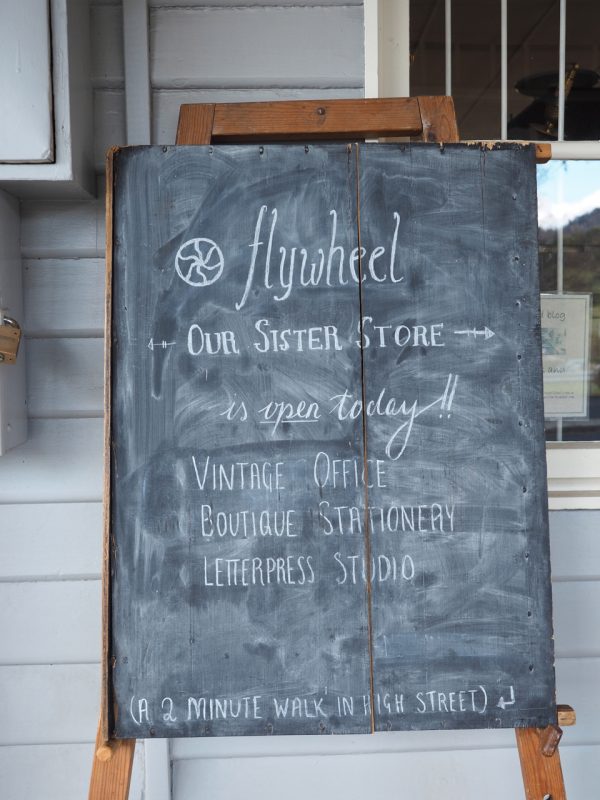 flywheel
OUR SISTER STORE
is open today!!
VINTAGE OFFICE
BOUTIQUE STATIONERY
LETTERPRESS STUDIO
(A 2 MINUTE WALK IN HIGH STREET)
blog
and